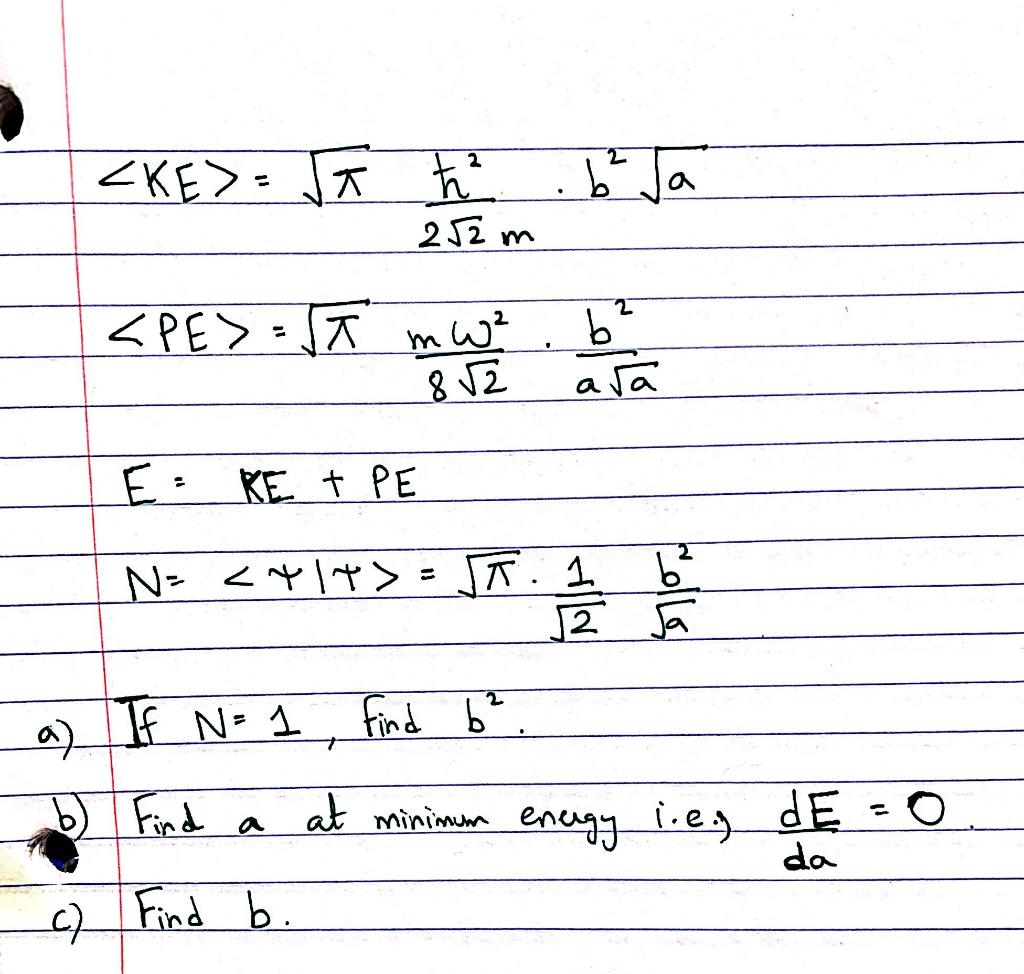 <KE> = √π ħ²/(2√2 m) · b² √a
<PE> = √π mω²/(8√2) · b²/(a√a)
E = KE + PE
N = <Ψ|Ψ> = √π · 1/√2 b²/√a
a) If N = 1, find b².
b) Find a at minimum energy i.e., dE/da = 0.
c) Find b.